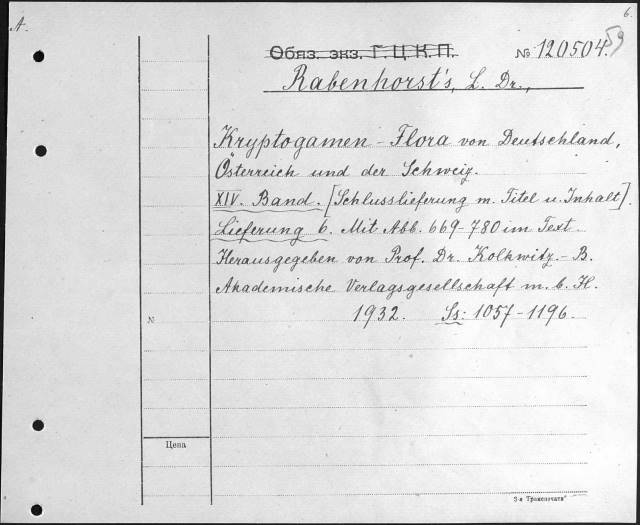 A.
6.
59
Обяз. экз. Г. Ц. К. П.
№ 120504.
Rabenhorst's, L. Dr.,
Kryptogamen-Flora von Deutschland,
Österreich und der Schweiz.
XIV. Band. [Schlusslieferung m. Titel u. Inhalt].
Lieferung 6. Mit Abb. 669-780 im Text.
Herausgegeben von Prof. Dr. Kolkwitz.-B.
Akademische Verlagsgesellschaft m. b. H.
1932. Ss: 1057-1196.
№
Цена
3-я Транспечать